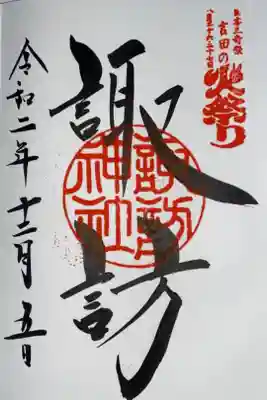 日本三奇祭
吉田の火祭り
八月二十六、二十七日
諏訪
諏訪神社
令和二年十二月五日